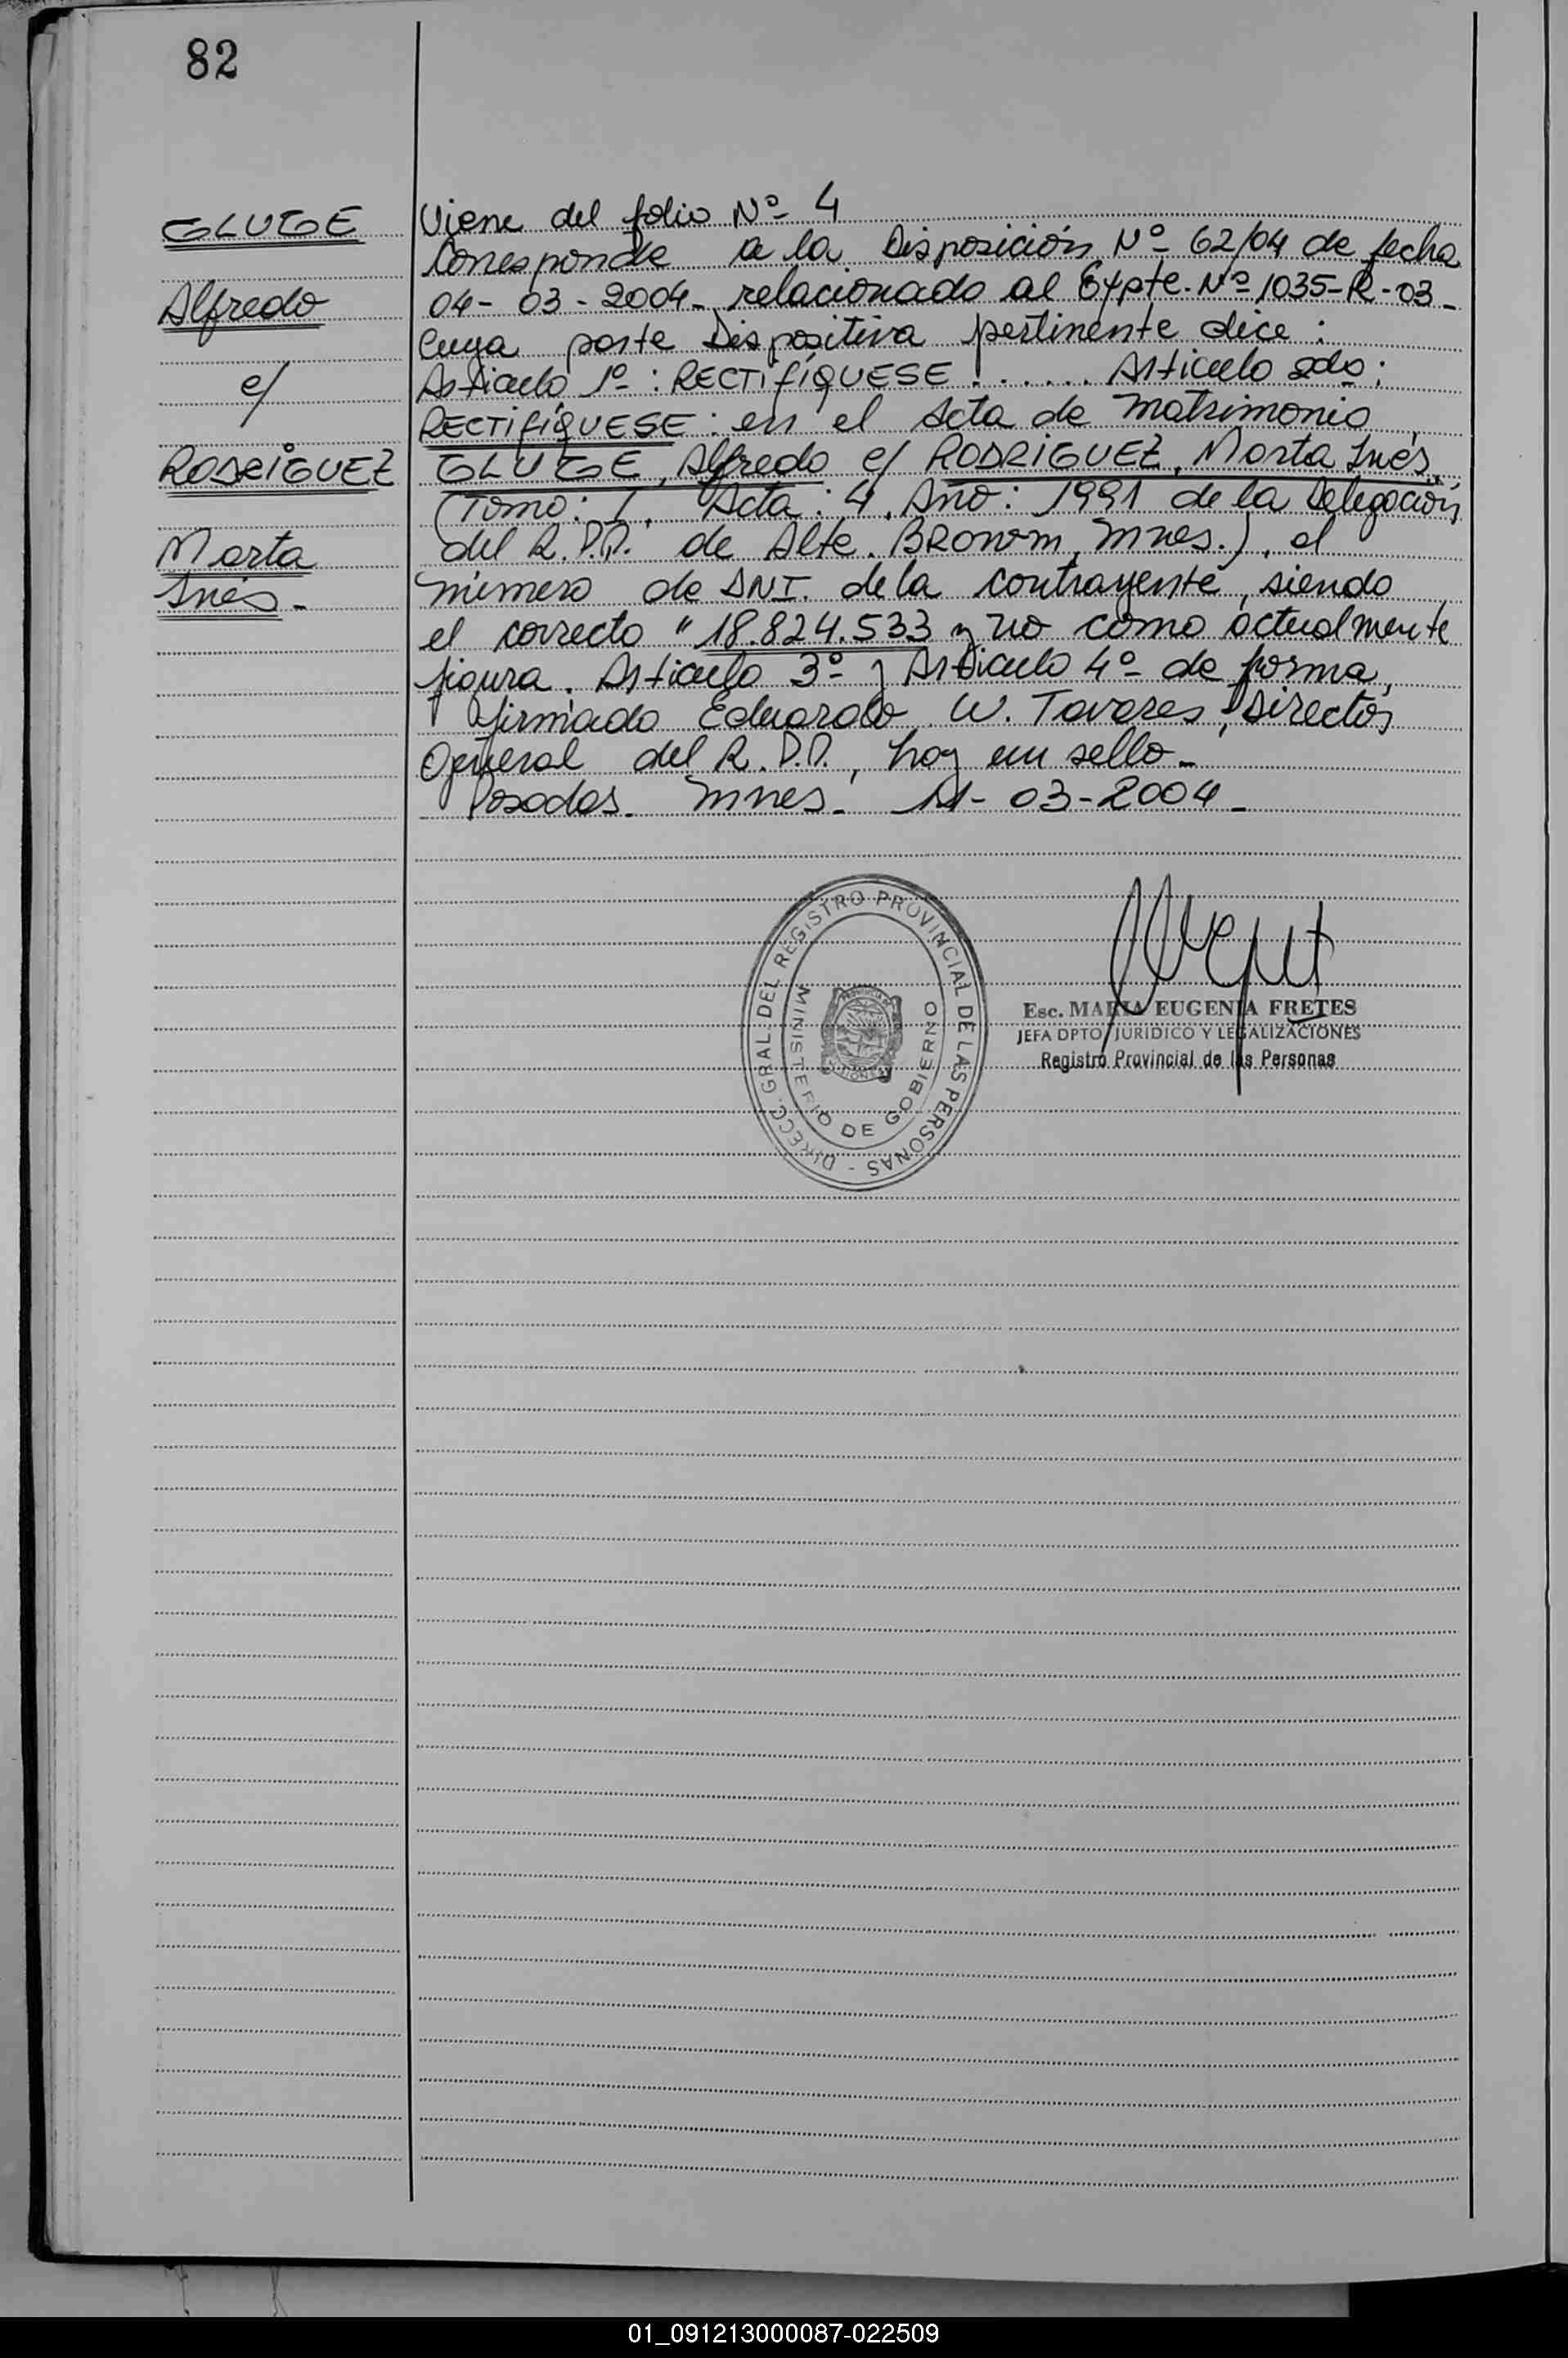 82
GLUGE
Alfredo
c/
RODRÍGUEZ
Marta
Inés.-
Viene del folio Nº 4
Corresponde a la Disposición Nº 62/04 de fecha
04-03-2004- relacionado al Expte. Nº 1035-R-03-
Cuya parte Dispositiva pertinente dice:
Artículo 1º: RECTIFÍQUESE ...... Artículo 2do:
RECTIFÍQUESE: en el Acta de Matrimonio
GLUGE, Alfredo c/ RODRIGUEZ, Marta Inés,
(Tomo: I, Acta: 4, Año: 1991 de la Delegación
del R.P.P. de Alte. BROWM, Mnes.), el
número de DNI. de la contrayente, siendo
el correcto "18.824.533 y no como actualmente
figura. Artículo 3º y Artículo 4º de forma,
firmado Eduardo W. Tavares, Director
General del R.P.P., hay un sello-
Posadas- Mnes- 11-03-2004-
DIRECC. GRAL. DEL REGISTRO PROVINCIAL DE LAS PERSONAS -
MINISTERIO DE GOBIERNO
Esc. MARIA EUGENIA FRETES
JEFA DPTO JURIDICO Y LEGALIZACIONES
Registro Provincial de las Personas
01_091213000087-022509